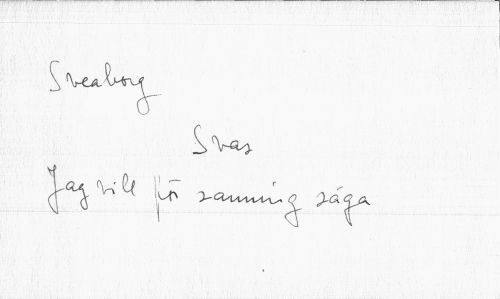 Sveaborg
Svar
Jag vill för sanning säga